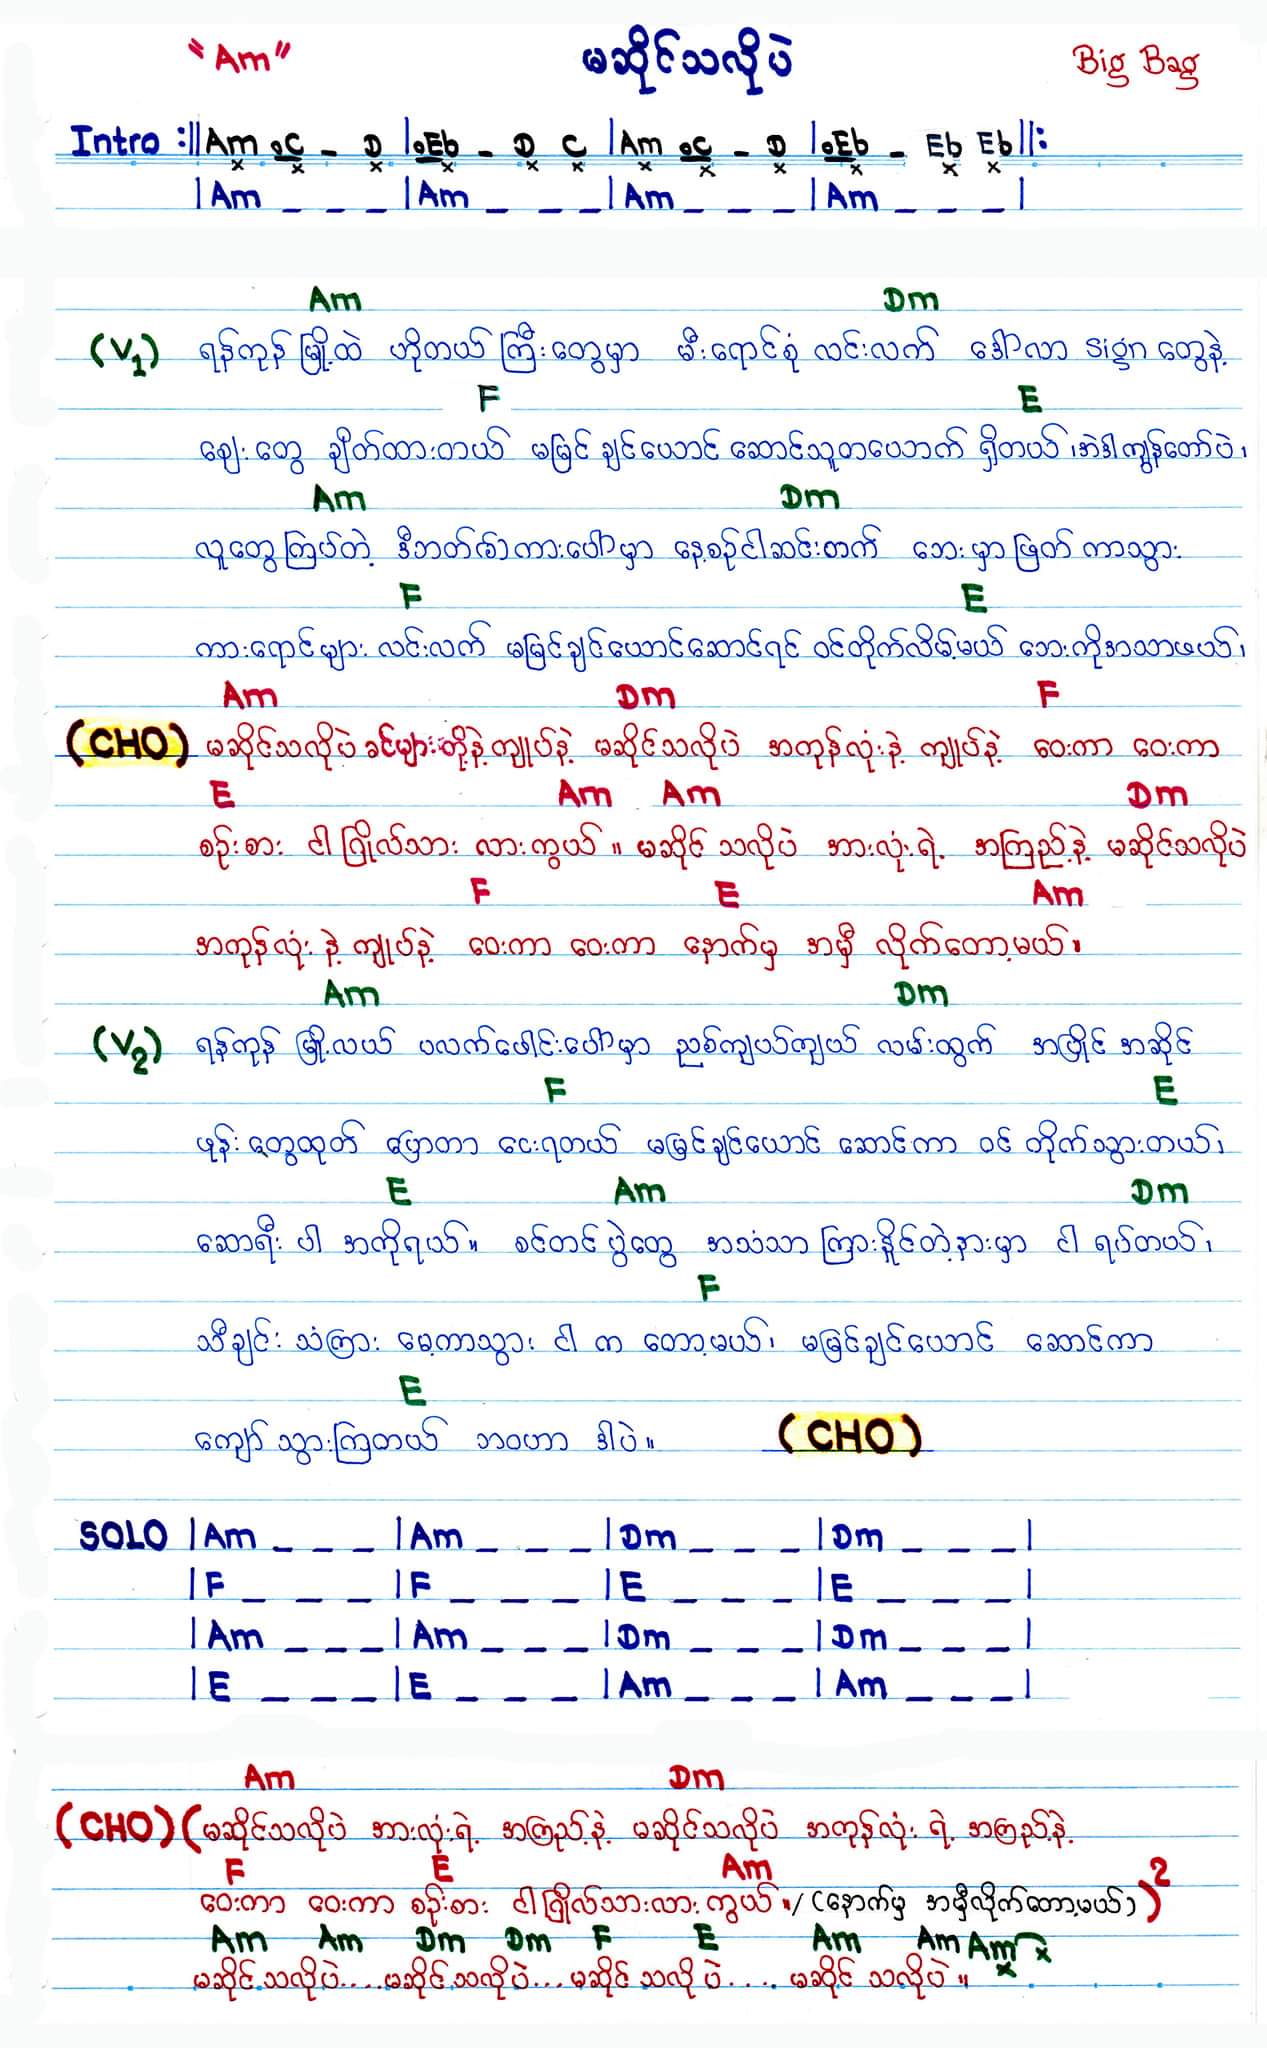 "Am" မဆိုင်သလိုပဲ Big Bag
Intro :||Am C – D |Eb – D C |Am C – D |Eb – Eb Eb||:
|Am _ _ _ |Am _ _ _ |Am _ _ _ |Am _ _ _ |
Am Dm
(V1) ရန်ကုန် မြို့ထဲ ဟိုတယ် ကြီးတွေမှာ မီးရောင်စုံ လင်းလက် ဒေါ်လာ sign တွေနဲ့
F E
ဈေးတွေ ချိတ်ထားတယ် မမြင် ချင်ယောင် ဆောင်သူတယောက် ရှိတယ်၊ အဲဒါကျွန်တော်ပဲ၊
Am Dm
လူတွေကြပ်တဲ့ ဒီဘတ်စ်ကားပေါ်မှာ နေ့စဉ်ငါဆင်းတက် ဘေးမှာဖြတ် ကာသွား
F E
ကားရောင်များ လင်းလက် မမြင်ချင်ယောင်ဆောင်ရင် ဝင်တိုက်လိမ့်မယ် ဘေးကိုအသာဖယ်၊
Am Dm F
(CHO) မဆိုင်သလိုပဲ ခင်များတို့နဲ့ ကျုပ်နဲ့ မဆိုင်သလိုပဲ အကုန်လုံးနဲ့ ကျုပ်နဲ့ ဝေးကာ ဝေးကာ
E Am Am Dm
စဉ်းစား ငါ ဂြိုလ်သား လားကွယ် ။ မဆိုင် သလိုပဲ အားလုံးရဲ့ အကြည့်နဲ့ မဆိုင်သလိုပဲ
F E Am
အကုန်လုံး နဲ့ ကျုပ်နဲ့ ဝေးကာ ဝေးကာ နောက်မှ အမှီ လိုက်တော့မယ်။
Am Dm
(V2) ရန်ကုန် မြို့လယ် ပလက်ဖေါင်းပေါ်မှာ ညစ်ကျပယ်ကျယ် လမ်းထွက် အပြိုင် အဆိုင်
F E
ဖုန်းတွေထုတ် ပြောတာ ငေးရတယ် မမြင်ချင်ယောင် ဆောင်ကာ ဝင် တိုက်သွားတယ်၊
E Am Dm
ဆောရီး ပါ အကိုရယ်။ စင်တင် ပွဲတွေ အသံသာ ကြားနိုင်တဲ့နားမှာ ငါ ရပ်တယ်၊
F
သီချင်း သံကြား မေ့ကာသွား ငါ က တော့မယ်၊ မမြင်ချင်ယောင် ဆောင်ကာ
E
ကျော် သွားကြတယ် ဘဝဟာ ဒါပဲ။ (CHO)
SOLO |Am _ _ _ |Am _ _ _ |Dm _ _ _ |Dm _ _ _ |
|F _ _ _ |F _ _ _ |E _ _ _ |E _ _ _ |
|Am _ _ _ |Am _ _ _ |Dm _ _ _ |Dm _ _ _ |
|E _ _ _ |E _ _ _ |Am _ _ _ |Am _ _ _ |
Am Dm
(CHO) (မဆိုင်သလိုပဲ အားလုံးရဲ့ အကြည့်နဲ့ မဆိုင်သလိုပဲ အကုန်လုံး ရဲ့ အကြည့်နဲ့
F E Am
ဝေးကာ ဝေးကာ စဉ်းစား ငါဂြိုလ်သားလား ကွယ် ။/ (နောက်မှ အမှီလိုက်တော့မယ်) )2
Am Am Dm Dm F E Am Am Am
မဆိုင်သလိုပဲ....မဆိုင်သလိုပဲ...မဆိုင် သလိုပဲ.... မဆိုင် သလိုပဲ ။